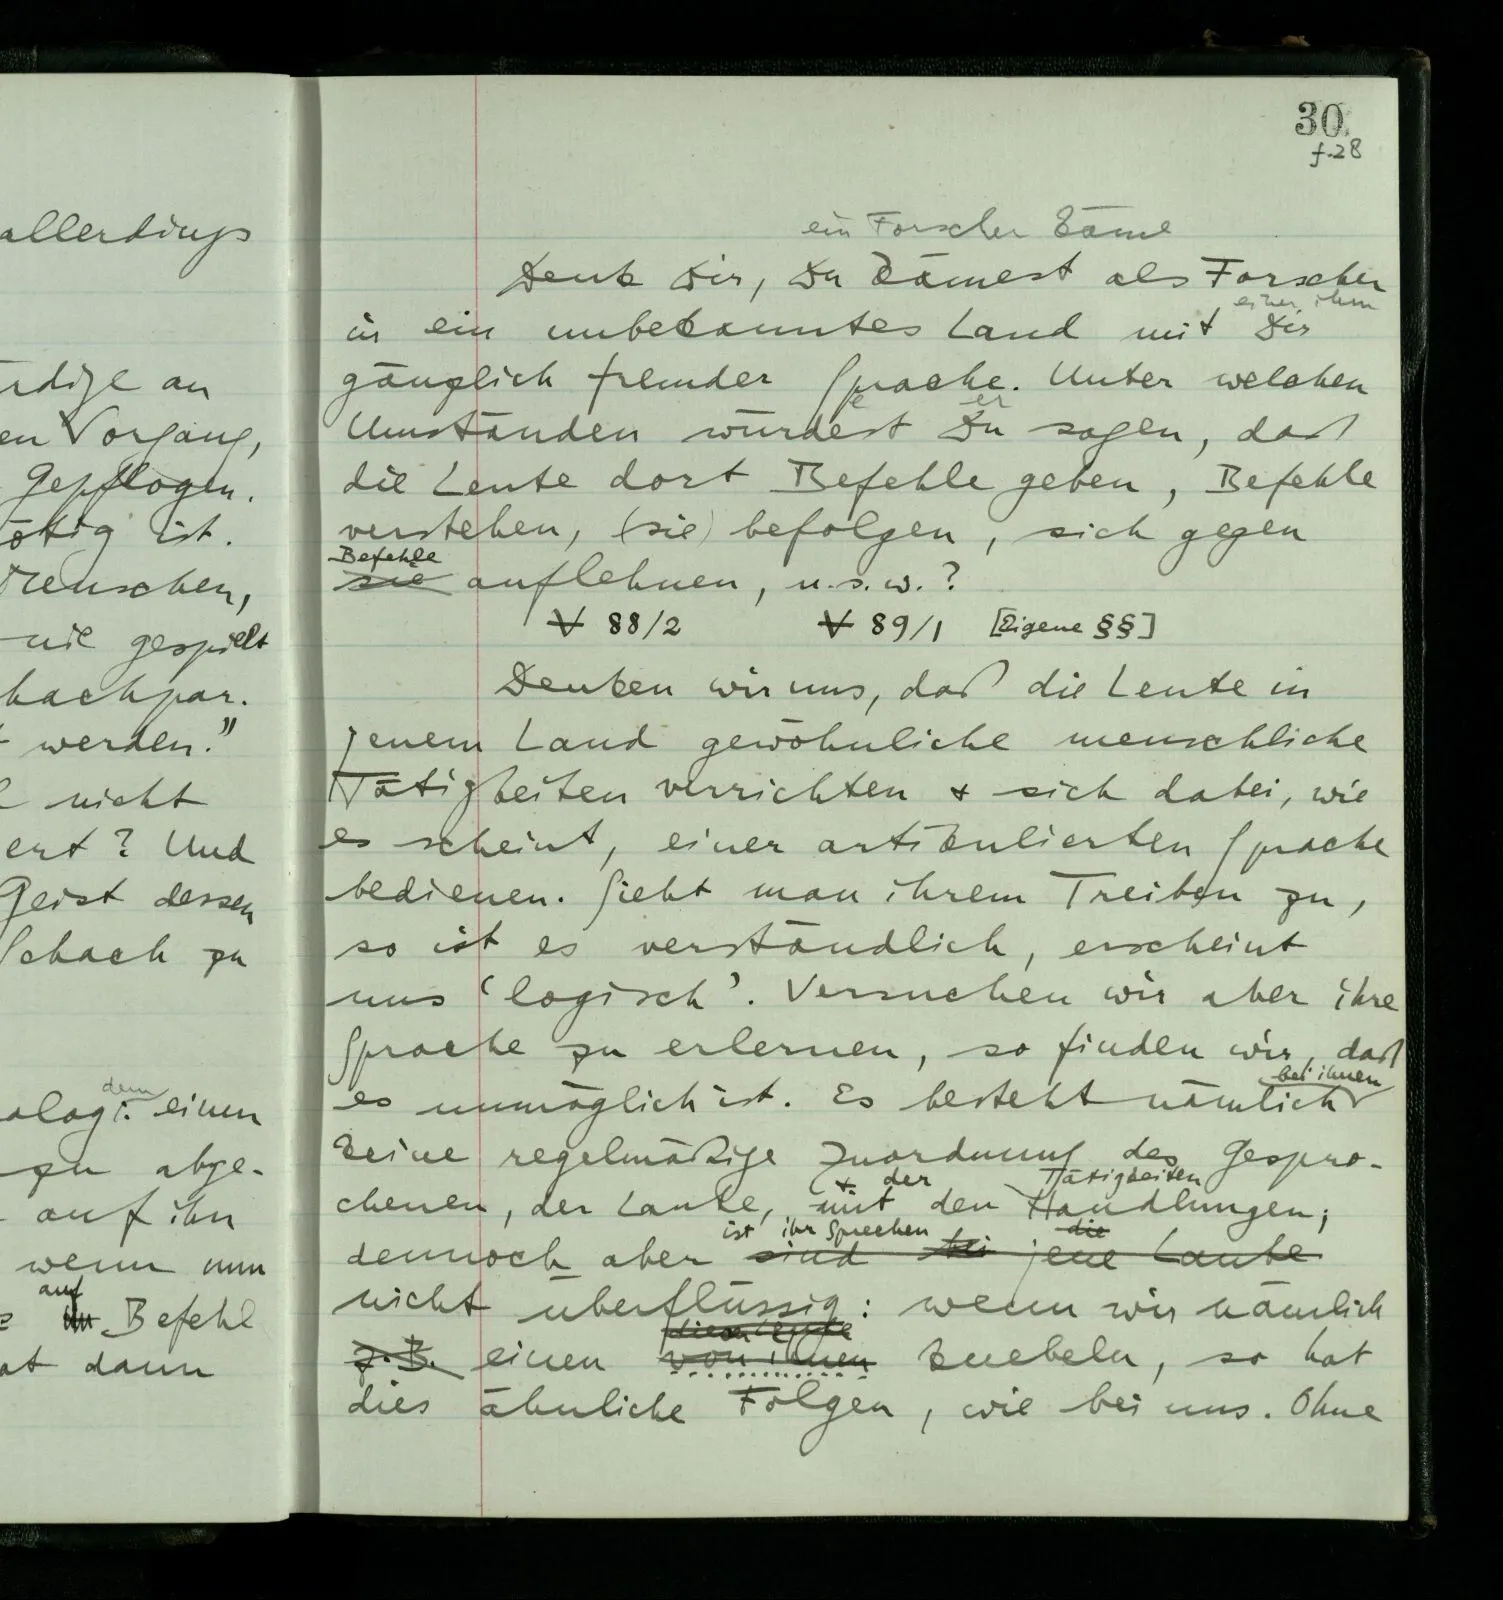 allerdings
rdige an
en Vorgang,
Gepflogen.
ötig ist.
Menschen,
nie gespielt
hachpar.
werden."
nicht
ert? Und
Geist dessen
Schach zu
dem
alogi. einen
zu abge-
auf ihn
wenn nun
auf
Befehl
at dann
30.
f.28
ein Forscher käme
Denk Dir, Du kämest als Forscher
einer ihm
in ein unbekanntes Land mit Dir
gänzlich fremder Sprache. Unter welchen
e er
Umständen würdest Du sagen, daß
die Leute dort Befehle geben, Befehle
verstehen, (sie) befolgen, sich gegen
Befehle
sie auflehnen, u.s.w.?
V 88/2 V 89/1 [Eigene §§]
Denken wir uns, daß die Leute in
jenem Land gewöhnliche menschliche
Tätigkeiten verrichten & sich dabei, wie
es scheint, einer artikulierten Sprache
bedienen. Sieht man ihrem Treiben zu,
so ist es verständlich, erscheint
uns 'logisch'. Versuchen wir aber ihre
Sprache zu erlernen, so finden wir, daß
bei ihnen
es unmöglich ist. Es besteht nämlich
keine regelmäßige Zuordnung des Gespro-
& der Tätigkeiten
chenen, der Laute, mit den Handlungen;
ist ihr Sprechen die
dennoch aber sind bei jene Laute
nicht überflüssig: wenn wir nämlich
dieser Leute
z.B. einen von ihnen knebeln, so hat
dies ähnliche Folgen, wie bei uns. Ohne